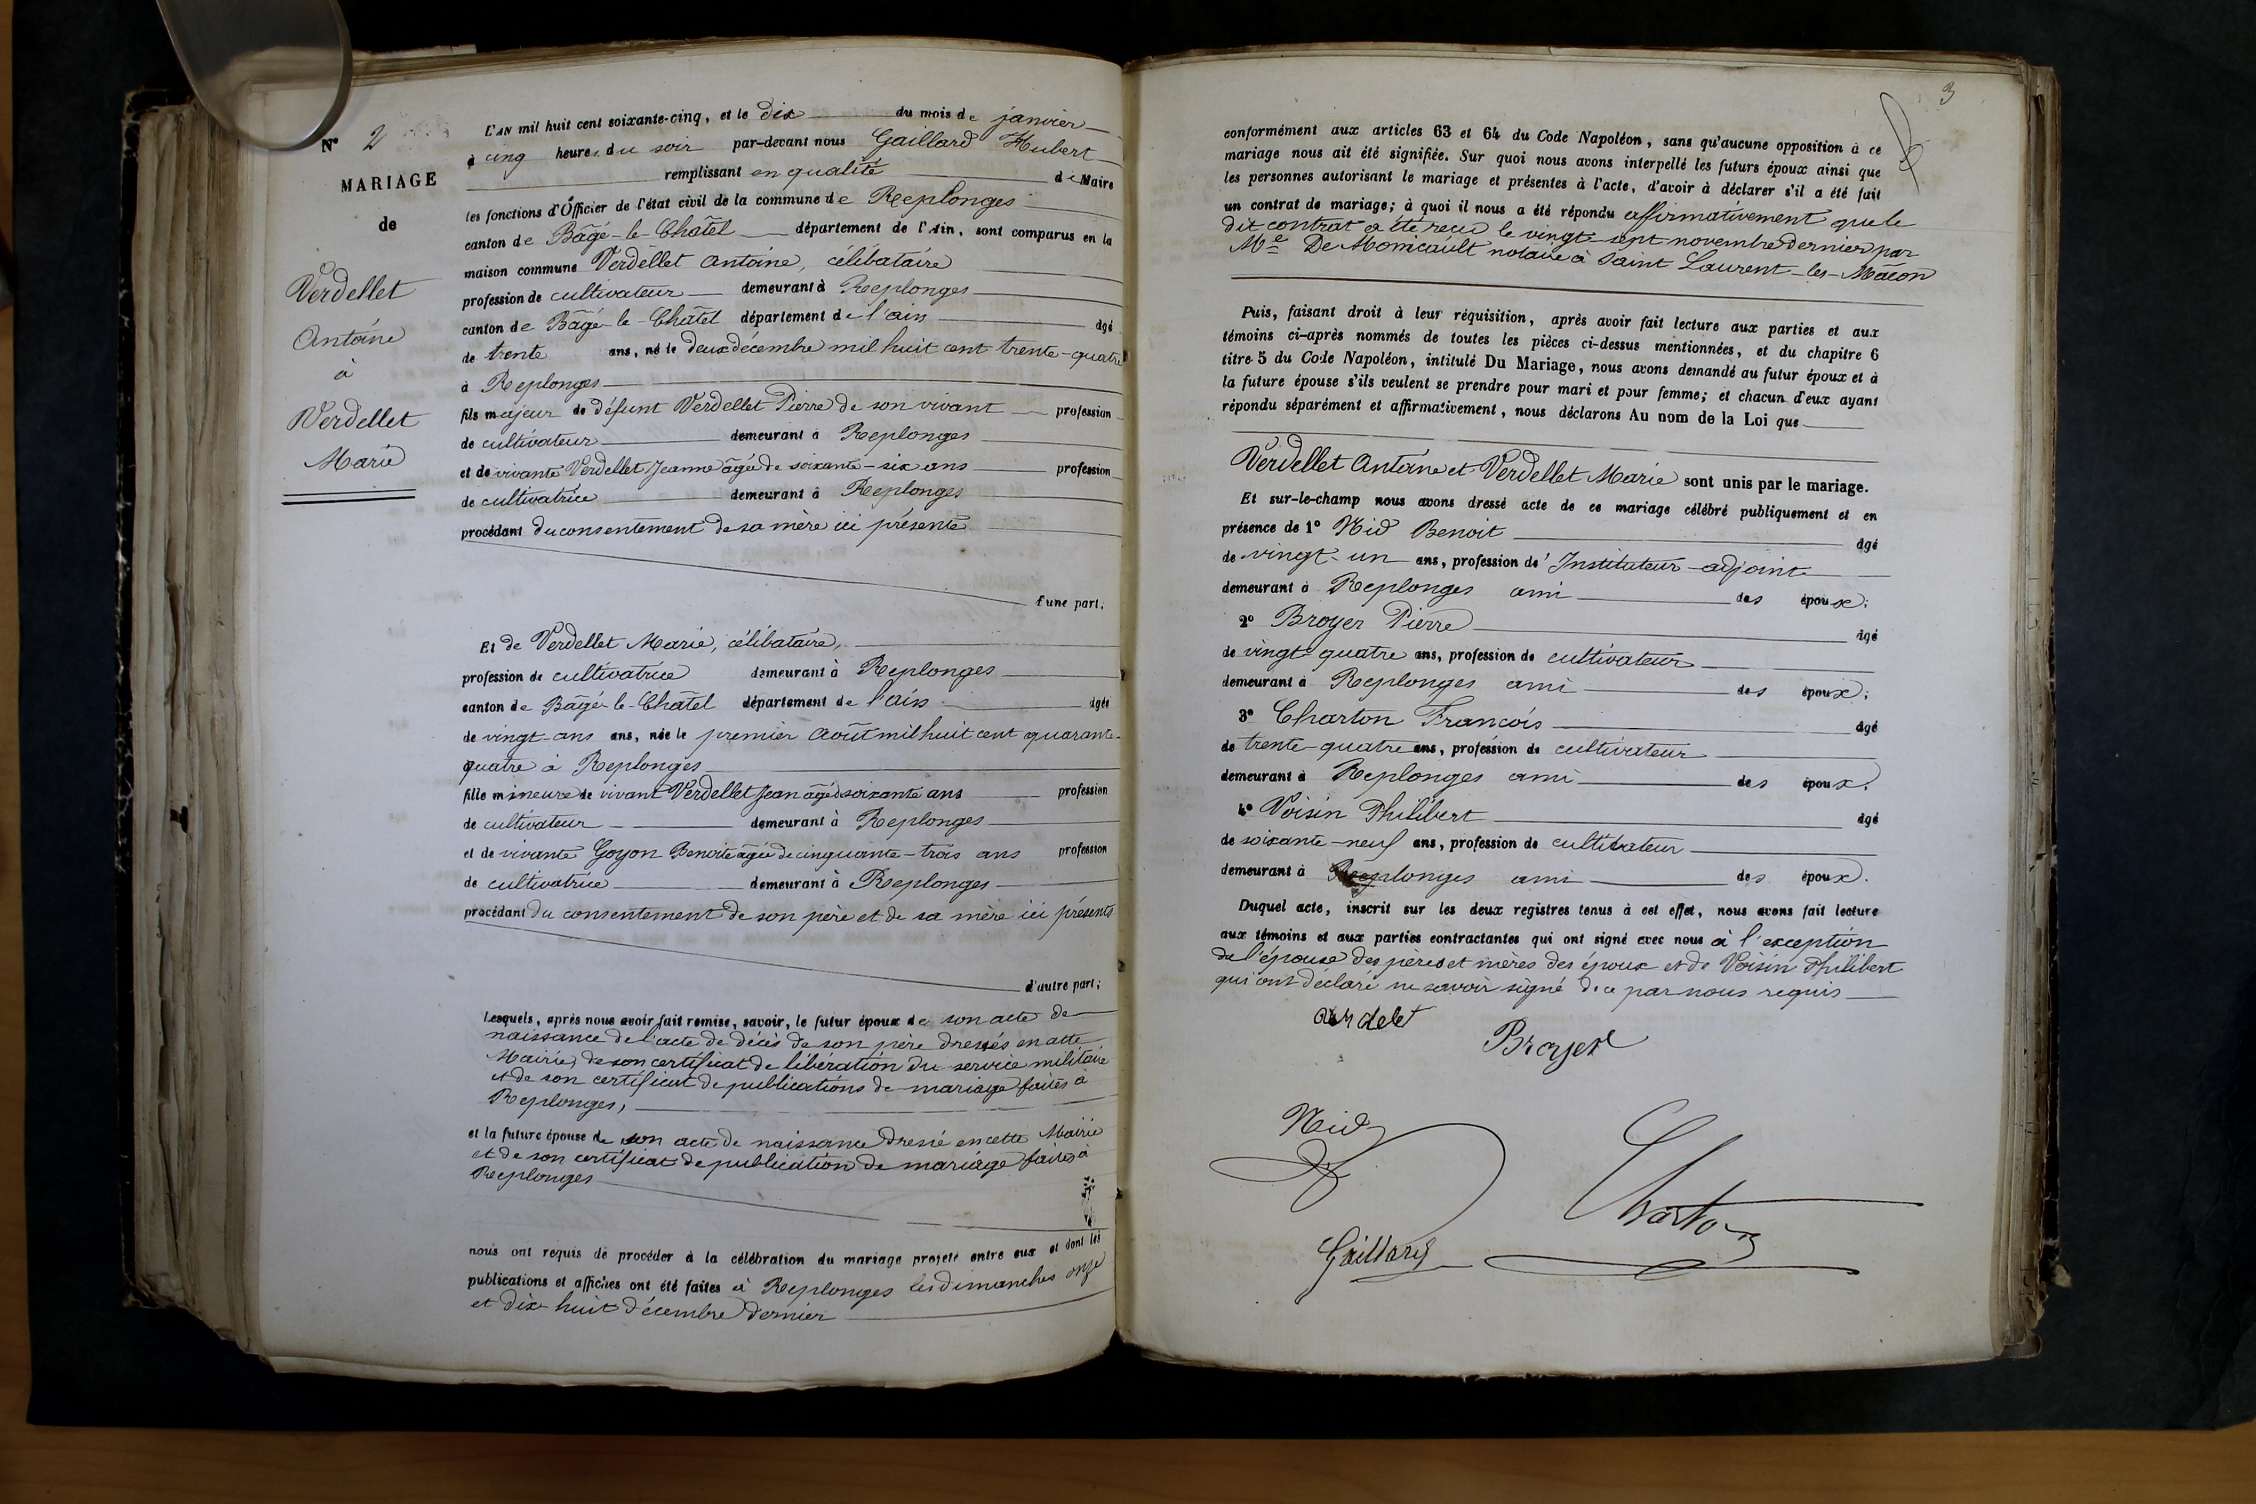 N° 2
MARIAGE
de
Verdellet
Antoine
à
Verdellet
Marie
L'AN mil huit cent soixante-cinq, et le dix du mois de janvier
à cinq heures du soir par-devant nous Gaillard Hubert
remplissant en qualité de Maire
les fonctions d'Officier de l'état civil de la commune de Replonges
canton de Bâgé-le-Châtel département de l'Ain, sont comparus en la
maison commune Verdellet Antoine, célibataire
profession de cultivateur demeurant à Replonges
canton de Bâgé-le-Châtel département de l'ain âgé
de trente ans, né le deux décembre mil huit cent trente-quatre
à Replonges
fils majeur de défunt Verdellet Pierre de son vivant profession
de cultivateur demeurant à Replonges
et de vivante Verdellet Jeanne âgée de soixante-six ans profession
de cultivatrice demeurant à Replonges
procédant du consentement de sa mère ici présente
d'une part;
Et de Verdellet Marie, célibataire,
profession de cultivatrice demeurant à Replonges
canton de Bâgé-le-Châtel département de l'ain âgée
de vingt-ans ans, née le premier Août mil huit cent quarante-
quatre à Replonges
fille mineure de vivant Verdellet Jean âgé de soixante ans profession
de cultivateur demeurant à Replonges
et de vivante Goyon Benoite âgée de cinquante-trois ans profession
de cultivatrice demeurant à Replonges
procédant du consentement de son père et de sa mère ici présents
d'autre part;
Lesquels, après nous avoir fait remise, savoir, le futur époux de son acte de
naissance de l'acte de décès de son père dressés en cette
Mairie, de son certificat de libération du service militaire
et de son certificat de publications de mariage faites à
Replonges,
et la future épouse de son acte de naissance dressé en cette Mairie
et de son certificat de publication de mariage faites à
Replonges
nous ont requis de procéder à la célébration du mariage projeté entre eux et dont les
publications et affiches ont été faites à Replonges les dimanches onze
et dix-huit décembre dernier
3
conformément aux articles 63 et 64 du Code Napoléon, sans qu'aucune opposition à ce
mariage nous ait été signifiée. Sur quoi nous avons interpellé les futurs époux ainsi que
les personnes autorisant le mariage et présentes à l'acte, d'avoir à déclarer s'il a été fait
un contrat de mariage; à quoi il nous a été répondu affirmativement que le
dit contrat a été reçu le vingt-sept novembre dernier par
Me De Monicault notaire à Saint Laurent-les-Mâcon
Puis, faisant droit à leur réquisition, après avoir fait lecture aux parties et aux
témoins ci-après nommés de toutes les pièces ci-dessus mentionnées, et du chapitre 6
titre 5 du Code Napoléon, intitulé Du Mariage, nous avons demandé au futur époux et à
la future épouse s'ils veulent se prendre pour mari et pour femme; et chacun d'eux ayant
répondu séparément et affirmativement, nous déclarons Au nom de la Loi que
Verdellet Antoine et Verdellet Marie sont unis par le mariage.
Et sur-le-champ nous avons dressé acte de ce mariage célébré publiquement et en
présence de 1° Nid Benoit âgé
de vingt-un ans, profession d'Instituteur-adjoint
demeurant à Replonges ami des époux;
2° Broyer Pierre âgé
de vingt-quatre ans, profession de cultivateur
demeurant à Replonges ami des époux;
3° Charton François âgé
de trente-quatre ans, profession de cultivateur
demeurant à Replonges ami des époux.
4° Voisin Philibert âgé
de soixante-neuf ans, profession de cultivateur
demeurant à Replonges ami des époux.
Duquel acte, inscrit sur les deux registres tenus à cet effet, nous avons fait lecture
aux témoins et aux parties contractantes qui ont signé avec nous à l'exception
de l'épouse des pères et mères des époux et de Voisin Philibert
qui ont déclaré ne savoir signé de ce par nous requis
Broyer
Nid
Charton
Gaillard